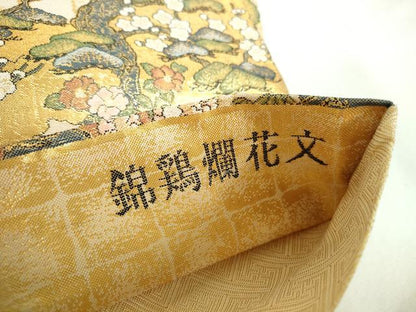 錦鶏爛花文